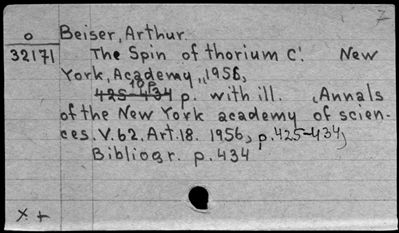 Z
o Beiser, Arthur.
32171 The Spin of thorium C'. New
York, Academy, 1956,
10 p.
425-434 p. with ill. (Annals
of the New York academy of scien-
ces. V. 62. Art. 18. 1956, p. 425-434)
Bibliogr. p. 434
X +